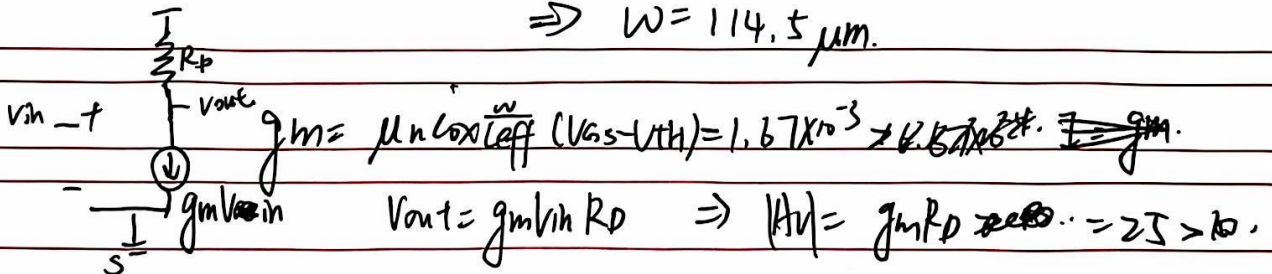 ⇒ W = 114.5 μm.
RD
Vin + Vout
gm = μnCox W/Leff (VGS-VTH) = 1.67×10⁻³
- gmVin Vout = gmVin RD ⇒ |Av| = gmRD = 25 > 10.
S